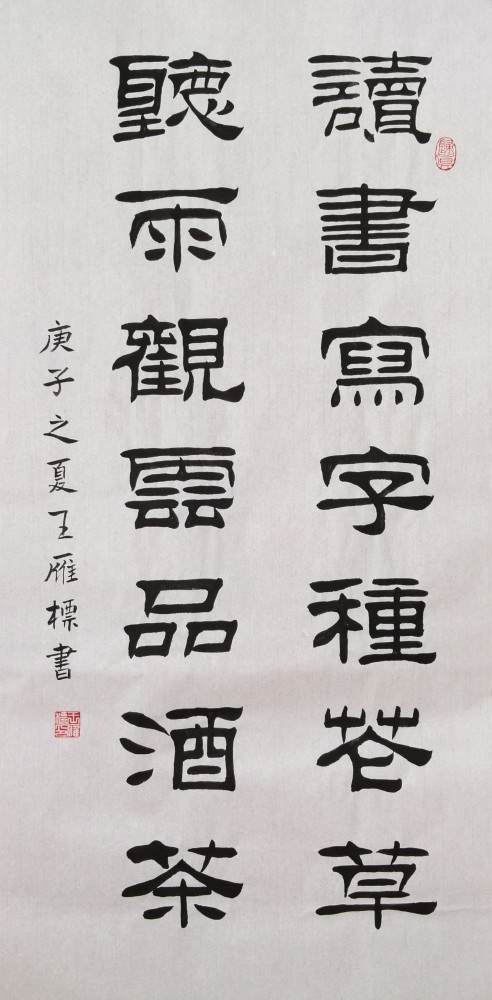 讀書寫字種花草
聽雨觀雲品酒茶
庚子之夏王雁標書